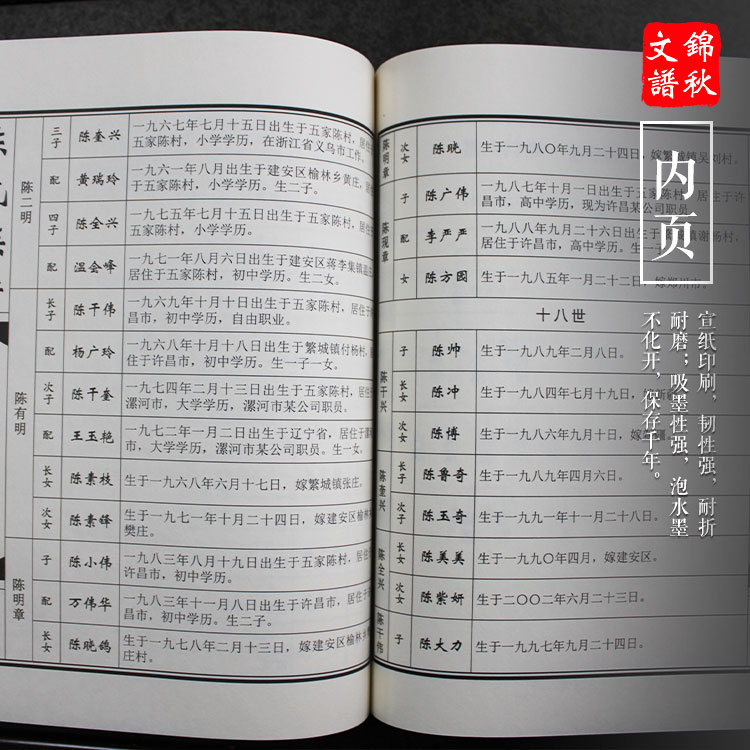 陈二明
三子 陈奎兴 一九六七年七月十五日出生于五家陈村，居住
五家陈村，小学学历，在浙江省义乌市工作。
配 黄瑞玲 一九六一年八月出生于建安区榆林乡黄庄，居
于五家陈村，小学学历。生二子。
四子 陈全兴 一九七五年七月十五日出生于五家陈村，居住
五家陈村，小学学历。
配 温会峰 一九七一年八月六日出生于建安区蒋李集镇温
居住于五家陈村，初中学历。生二女。
陈有明
长子 陈干伟 一九六九年十月十日出生于五家陈村，居住于
昌市，初中学历，自由职业。
配 杨广玲 一九六八年十月十八日出生于繁城镇付杨村，
居住于许昌市，初中学历。生一子一女。
次子 陈干奎 一九七四年二月十三日出生于五家陈村，居住
漯河市，大学学历，漯河市某公司职员。
配 王玉艳 一九七二年一月二日出生于辽宁省，居住于漯
市，大学学历，漯河市某公司职员。生一女。
长女 陈素枝 生于一九六八年六月十七日，嫁繁城镇张庄。
次女 陈素锋 生于一九七一年十月二十四日，嫁建安区榆林
樊庄。
陈明章
子 陈小伟 一九八三年八月十九日出生于五家陈村，居住
于许昌市，初中学历。
配 万伟华 一九八三年十一月八日出生于许昌市，居住于
许昌市，初中学历。生二子。
长女 陈晓鸽 生于一九七八年二月十三日，嫁建安区榆林乡
庄村。
陈明章
次女 陈晓 生于一九八〇年九月二十四日，嫁繁城镇吴刘村。
陈现章
子 陈广伟 一九八七年十月一日出生于五家陈村，居住于许
昌市，高中学历，现为许昌某公司职员。
配 李严严 一九八八年九月二十六日出生于
居住于许昌市，高中学历。生一子
女 陈方园 生于一九八五年一月二十二日，嫁郑州市。
十八世
陈干兴
子 陈帅 生于一九八九年二月八日。
长女 陈冲 生于一九八四年十月十七日，
次女 陈博 生于一九八六年九月十日，嫁
陈奎兴
长子 陈鲁奇 生于一九八九年四月六日。
次子 陈玉奇 生于一九九一年十一月二十八日。
陈全兴
长女 陈美美 生于一九九〇年四月，嫁建安区。
次女 陈紫妍 生于二〇〇二年六月二十三日。
陈干伟
子 陈大力 生于一九九七年九月二十四日。
錦秋
文譜
内页
宣纸印刷，韧性强，耐折
耐磨；吸墨性强，泡水墨
不化开，保存千年。